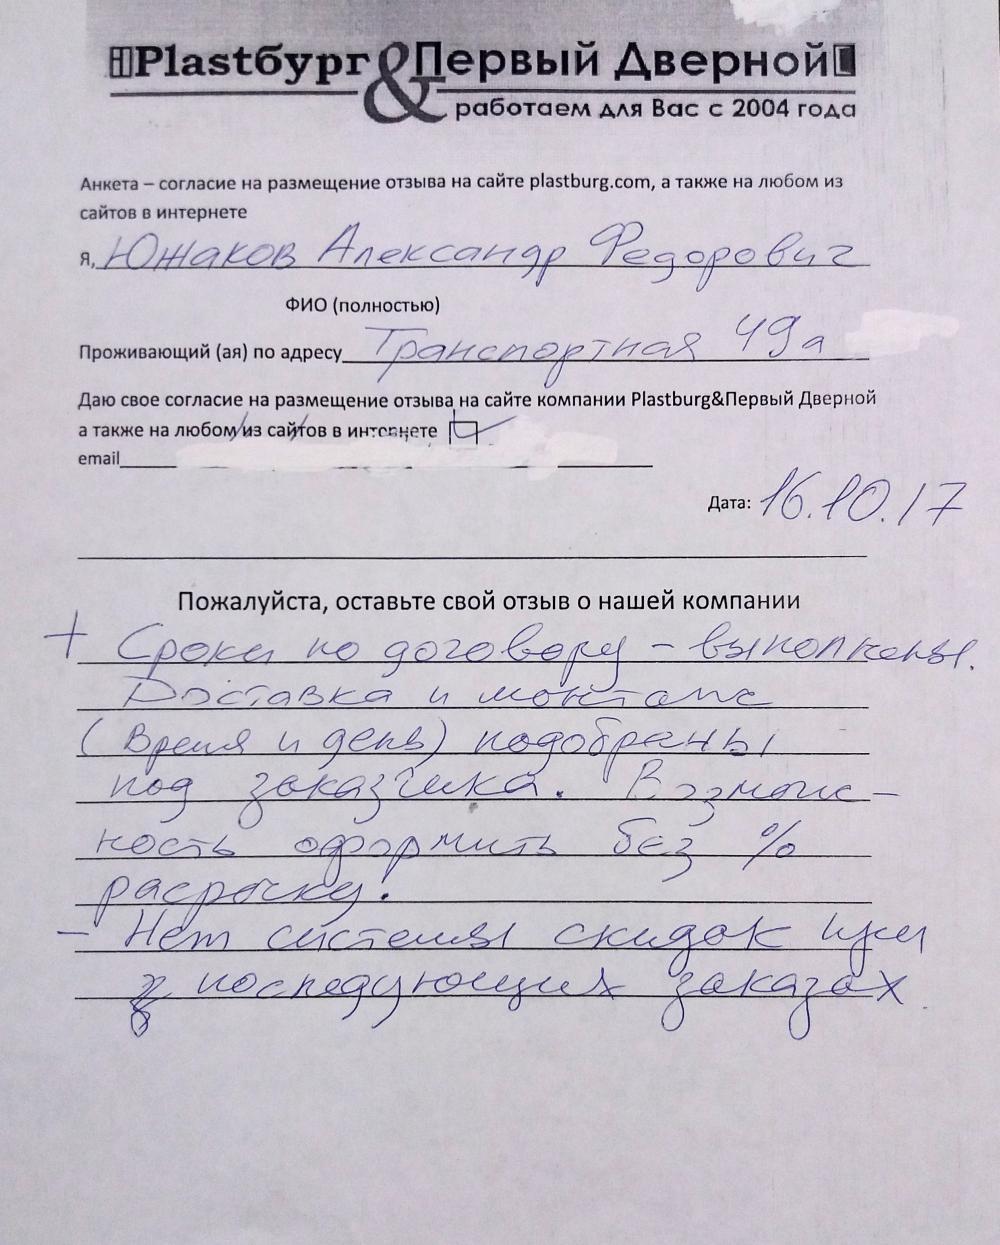 Plastбург & Первый Дверной
работаем для Вас с 2004 года
Анкета – согласие на размещение отзыва на сайте plastburg.com, а также на любом из
сайтов в интернете
Я, Южаков Александр Федорович
ФИО (полностью)
Проживающий (ая) по адресу Транспортная 49а
Даю свое согласие на размещение отзыва на сайте компании Plastburg&Первый Дверной
а также на любом из сайтов в интернете
email
Дата: 16.10.17
Пожалуйста, оставьте свой отзыв о нашей компании
+ Сроки по договору – выполнены.
Доставка и монтаж
(Время и день) подобраны
под заказчика. Возмож-
ность оформить без %
расрочку.
– Нет системы скидок при
последующих заказах